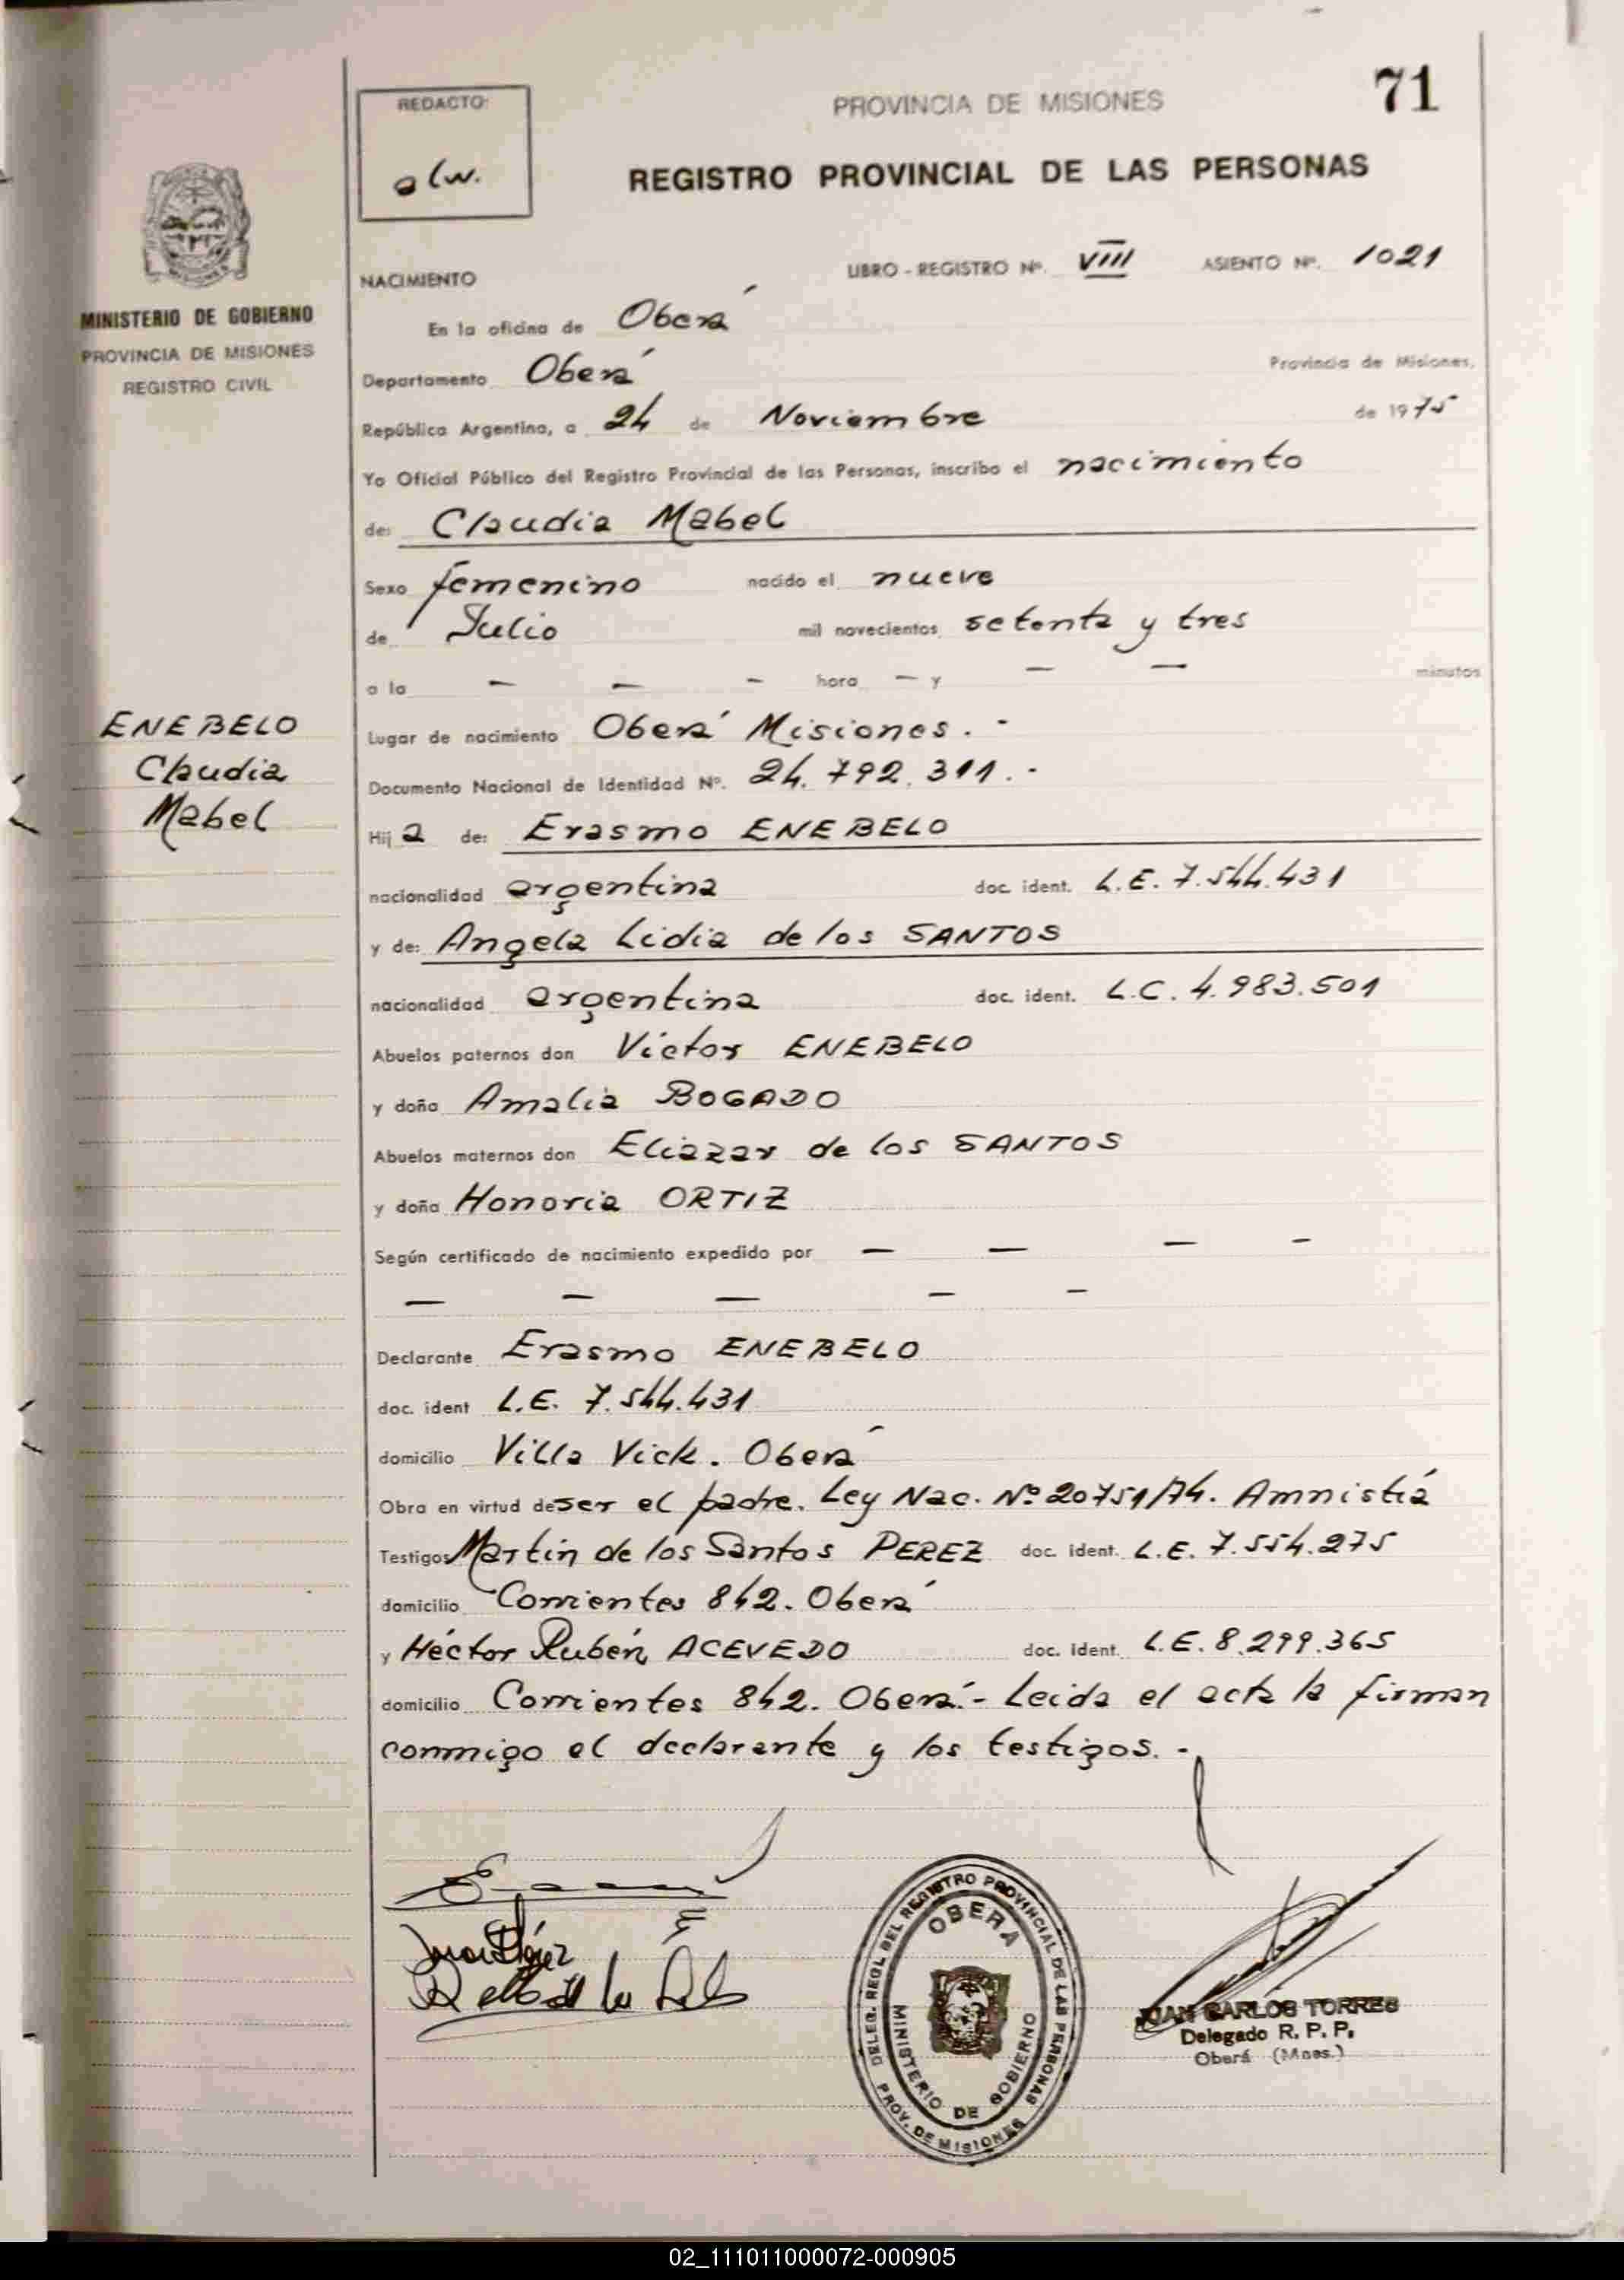 71
REDACTO:
PROVINCIA DE MISIONES
REGISTRO PROVINCIAL DE LAS PERSONAS
LIBRO - REGISTRO Nº. VIII ASIENTO Nº. 1021
NACIMIENTO
MINISTERIO DE GOBIERNO
PROVINCIA DE MISIONES
REGISTRO CIVIL
En la oficina de Oberá
Departamento Oberá Provincia de Misiones,
República Argentina, a 24 de Noviembre de 1975
Yo Oficial Público del Registro Provincial de las Personas, inscribo el nacimiento
de: Claudia Mabel
Sexo femenino nacido el nueve
de Julio mil novecientos setenta y tres
a la — — - hora — y — — minutos
ENEBELO
Claudia
Mabel
Lugar de nacimiento Oberá Misiones. -
Documento Nacional de Identidad Nº. 24.792.311.-
Hij a de: Erasmo ENEBELO
nacionalidad argentina doc. ident. L.E. 7.544.431
y de: Angela Lidia de los SANTOS
nacionalidad argentina doc. ident. L.C. 4.983.501
Abuelos paternos don Victor ENEBELO
y doña Amalia BOGADO
Abuelos maternos don Eliazar de los SANTOS
y doña Honoria ORTIZ
Según certificado de nacimiento expedido por — — — -
— — — — -
Declarante Erasmo ENEBELO
doc. ident L.E. 7.544.431
domicilio Villa Vick. Oberá
Obra en virtud de ser el padre. Ley Nac. Nº 20751/74. Amnistiá
Testigos Martin de los Santos PEREZ doc. ident. L.E. 7.554.275
domicilio Corrientes 842. Oberá
y Héctor Rubén ACEVEDO doc. ident. L.E. 8.299.365
domicilio Corrientes 842. Oberá.- Leida el acta la firman
conmigo el declarante y los testigos. -
DELEG. REGL DEL REGISTRO PROVINCIAL DE LAS PERSONAS
OBERA
MINISTERIO DE GOBIERNO
PROV. DE MISIONES
JUAN CARLOS TORRES
Delegado R. P. P.
Oberá (Mnes.)
02_111011000072-000905